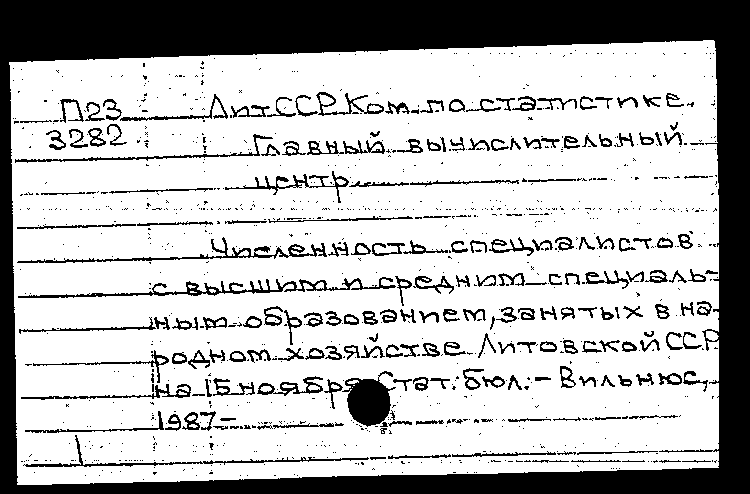 П23 ЛитССР. Ком. по статистике.
3282 Главный вычислительный
центр.
Численность специалистов
с высшим и средним специаль-
ным образованием, занятых в на-
родном хозяйстве Литовской ССР
на 15 ноября Стат. бюл. - Вильнюс,
1987-